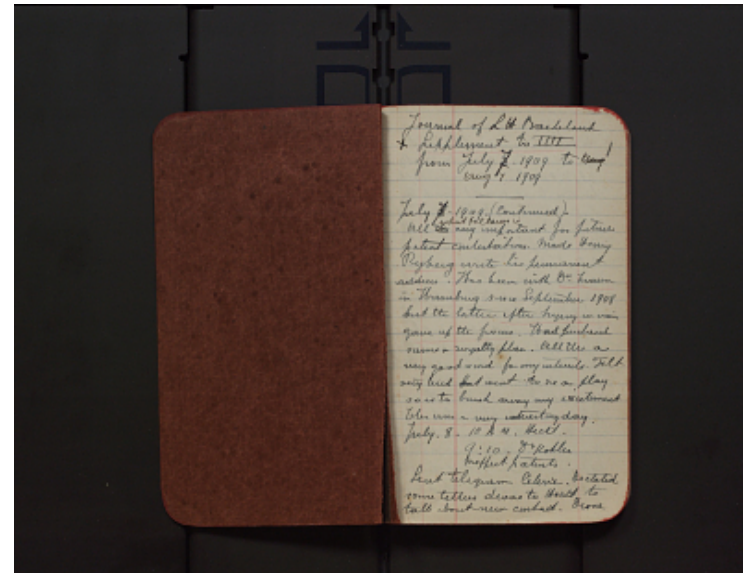 Journal of L H Baekeland
& Supplement to IIII
from July 7 - 1909 to Aug
Aug 1909
July 7 - 1909 (Continued).
All very important for future
patent contestation. Made Henry
write his permanent
address. Has been with Dr.
in since September 1908
but the latter after trying in vain
gave up the
royalty plan. All this a
very good for my interests. Felt
very tired but went to see a play
so as to brush away my excitement
This was a very interesting day.
July. 8 - 10 A.M. Hecht.
9:10 - Dr Rohler
Inspect patents.
Sent telegram Celeriv. Dictated
some letters to to
talk about new contract. Drove